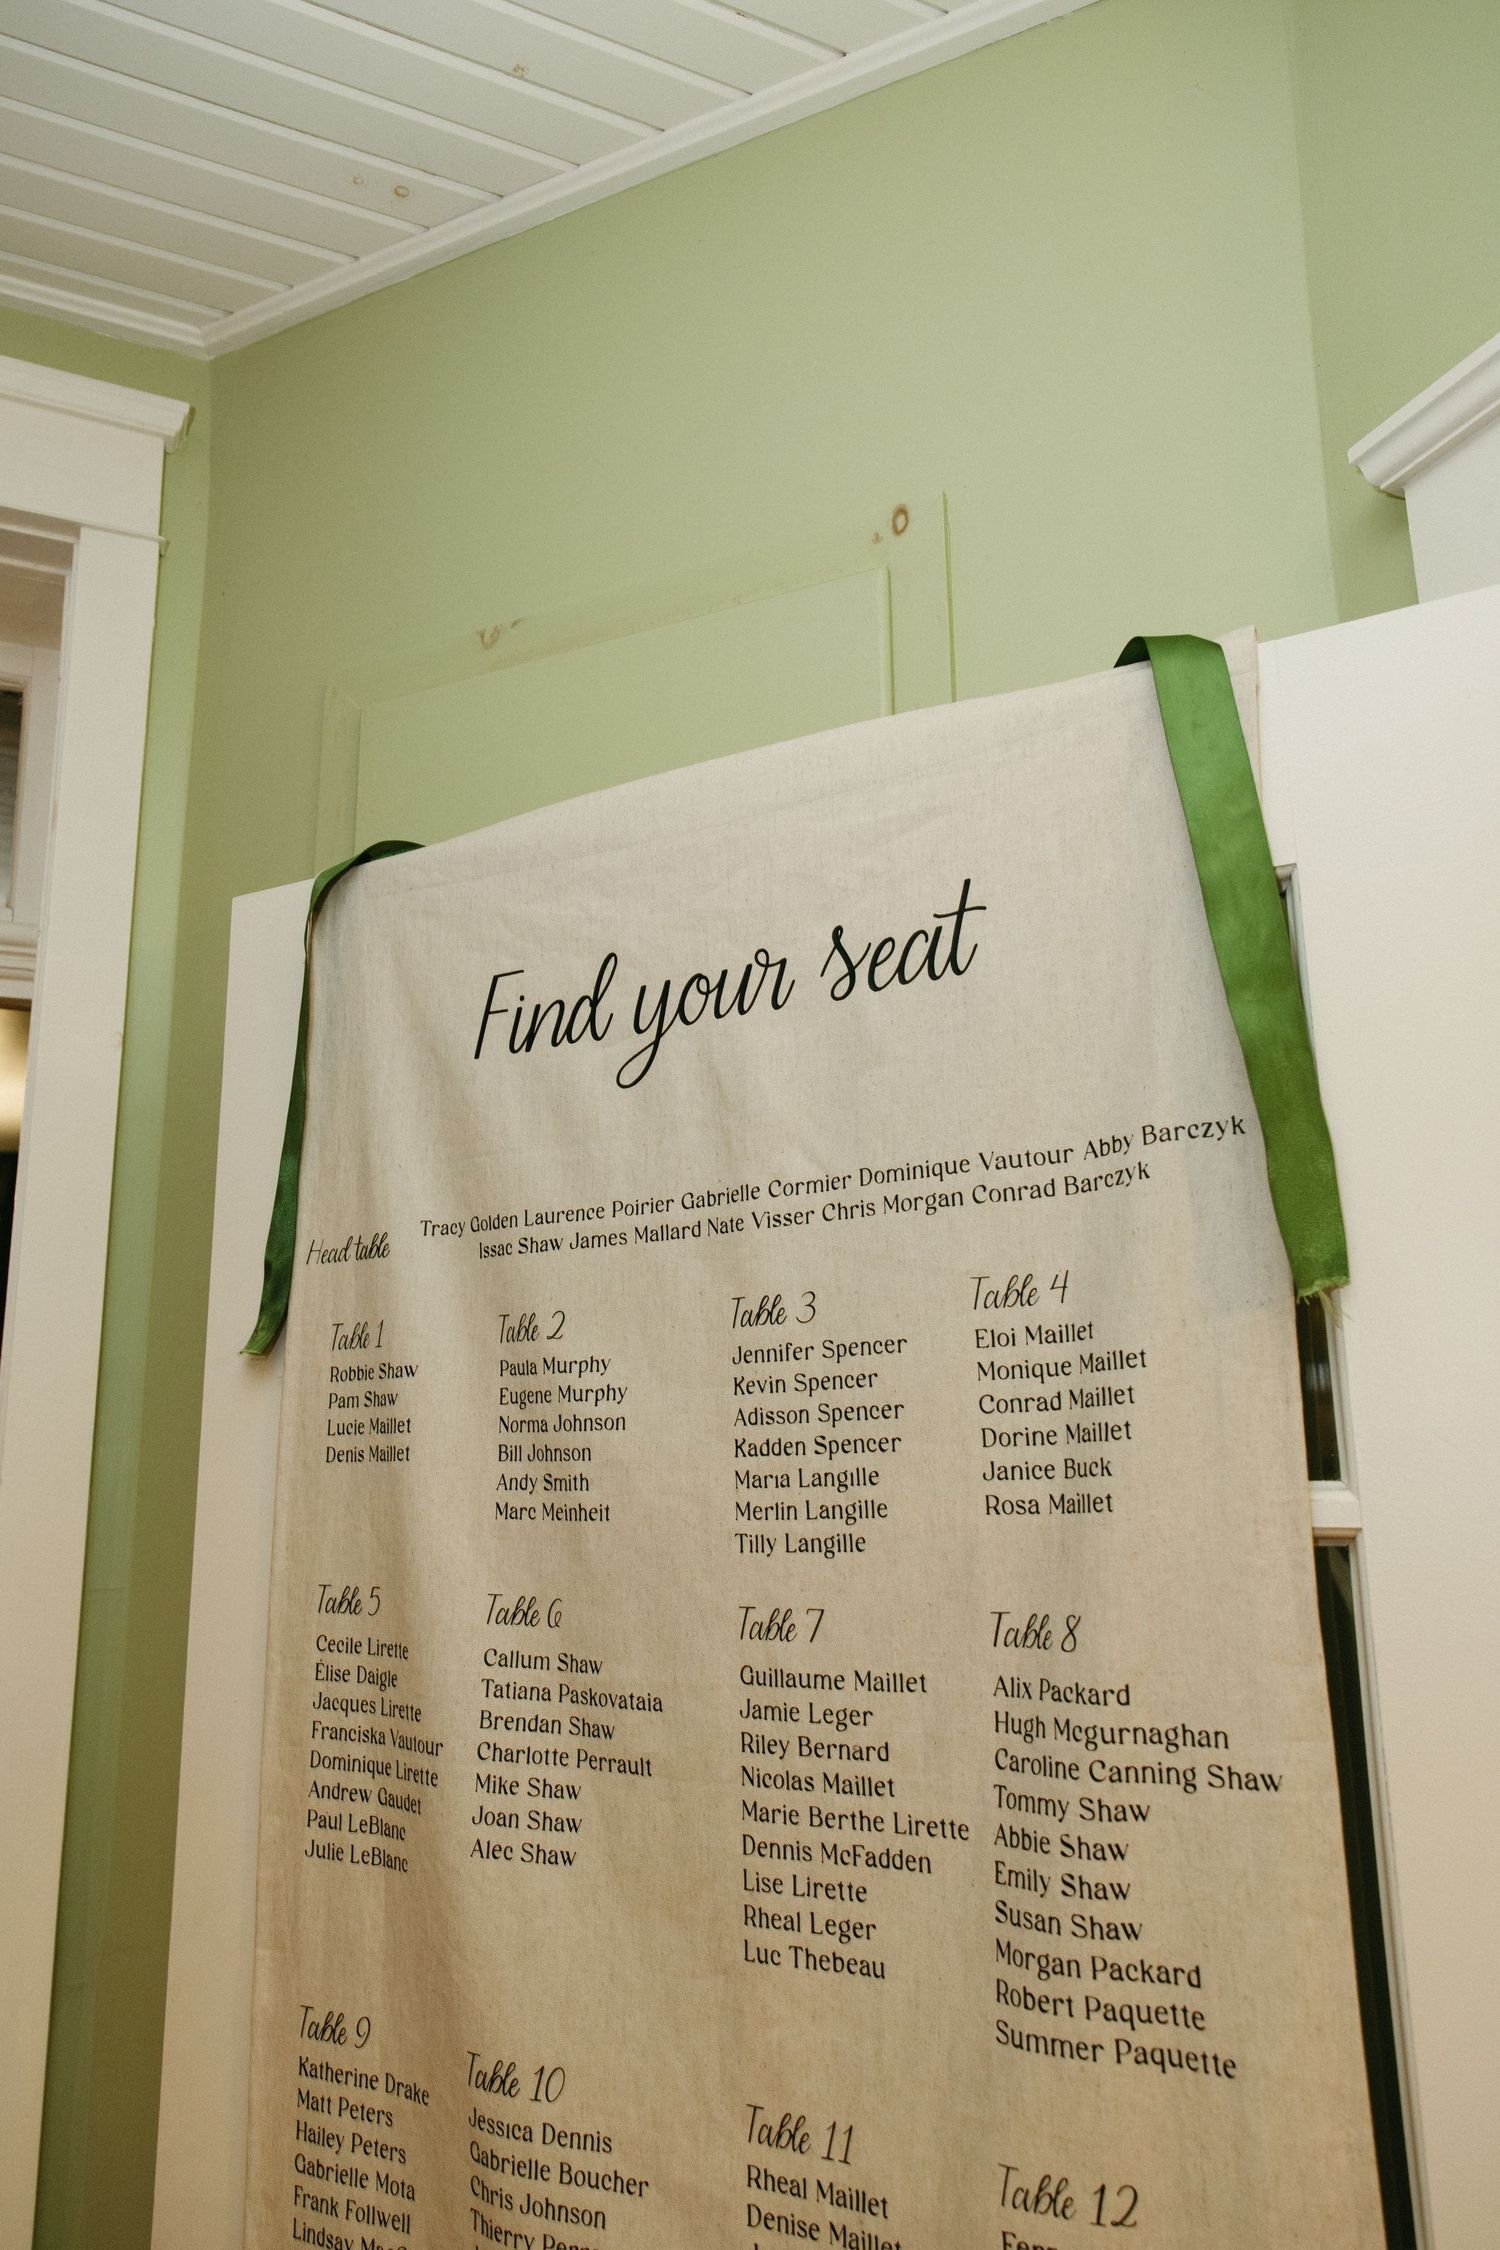 Find your seat
Head table
Tracy Golden Laurence Poirier Gabrielle Cormier Dominique Vautour Abby Barczyk
Issac Shaw James Mallard Nate Visser Chris Morgan Conrad Barczyk
Table 1
Robbie Shaw
Pam Shaw
Lucie Maillet
Denis Maillet
Table 2
Paula Murphy
Eugene Murphy
Norma Johnson
Bill Johnson
Andy Smith
Marc Meinheit
Table 3
Jennifer Spencer
Kevin Spencer
Adisson Spencer
Kadden Spencer
Maria Langille
Merlin Langille
Tilly Langille
Table 4
Eloi Maillet
Monique Maillet
Conrad Maillet
Dorine Maillet
Janice Buck
Rosa Maillet
Table 5
Cecile Lirette
Élise Daigle
Jacques Lirette
Franciska Vautour
Dominique Lirette
Andrew Gaudet
Paul LeBlanc
Julie LeBlanc
Table 6
Callum Shaw
Tatiana Paskovataia
Brendan Shaw
Charlotte Perrault
Mike Shaw
Joan Shaw
Alec Shaw
Table 7
Guillaume Maillet
Jamie Leger
Riley Bernard
Nicolas Maillet
Marie Berthe Lirette
Dennis McFadden
Lise Lirette
Rheal Leger
Luc Thebeau
Table 8
Alix Packard
Hugh Mcgurnaghan
Caroline Canning Shaw
Tommy Shaw
Abbie Shaw
Emily Shaw
Susan Shaw
Morgan Packard
Robert Paquette
Summer Paquette
Table 9
Katherine Drake
Matt Peters
Hailey Peters
Gabrielle Mota
Frank Follwell
Lindsay
Table 10
Jessica Dennis
Gabrielle Boucher
Chris Johnson
Thierry
Table 11
Rheal Maillet
Denise Maillet
Table 12